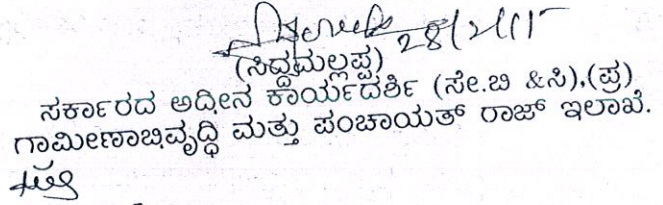 28/2/15
(ಸಿದ್ದಮಲ್ಲಪ್ಪ)
ಸರ್ಕಾರದ ಅಧೀನ ಕಾರ್ಯದರ್ಶಿ (ಸೇ.ಬಿ &ಸಿ),(ಪ್ರ)
ಗಾಮೀಣಾಭಿವೃದ್ಧಿ ಮತ್ತು ಪಂಚಾಯತ್ ರಾಜ್ ಇಲಾಖೆ.